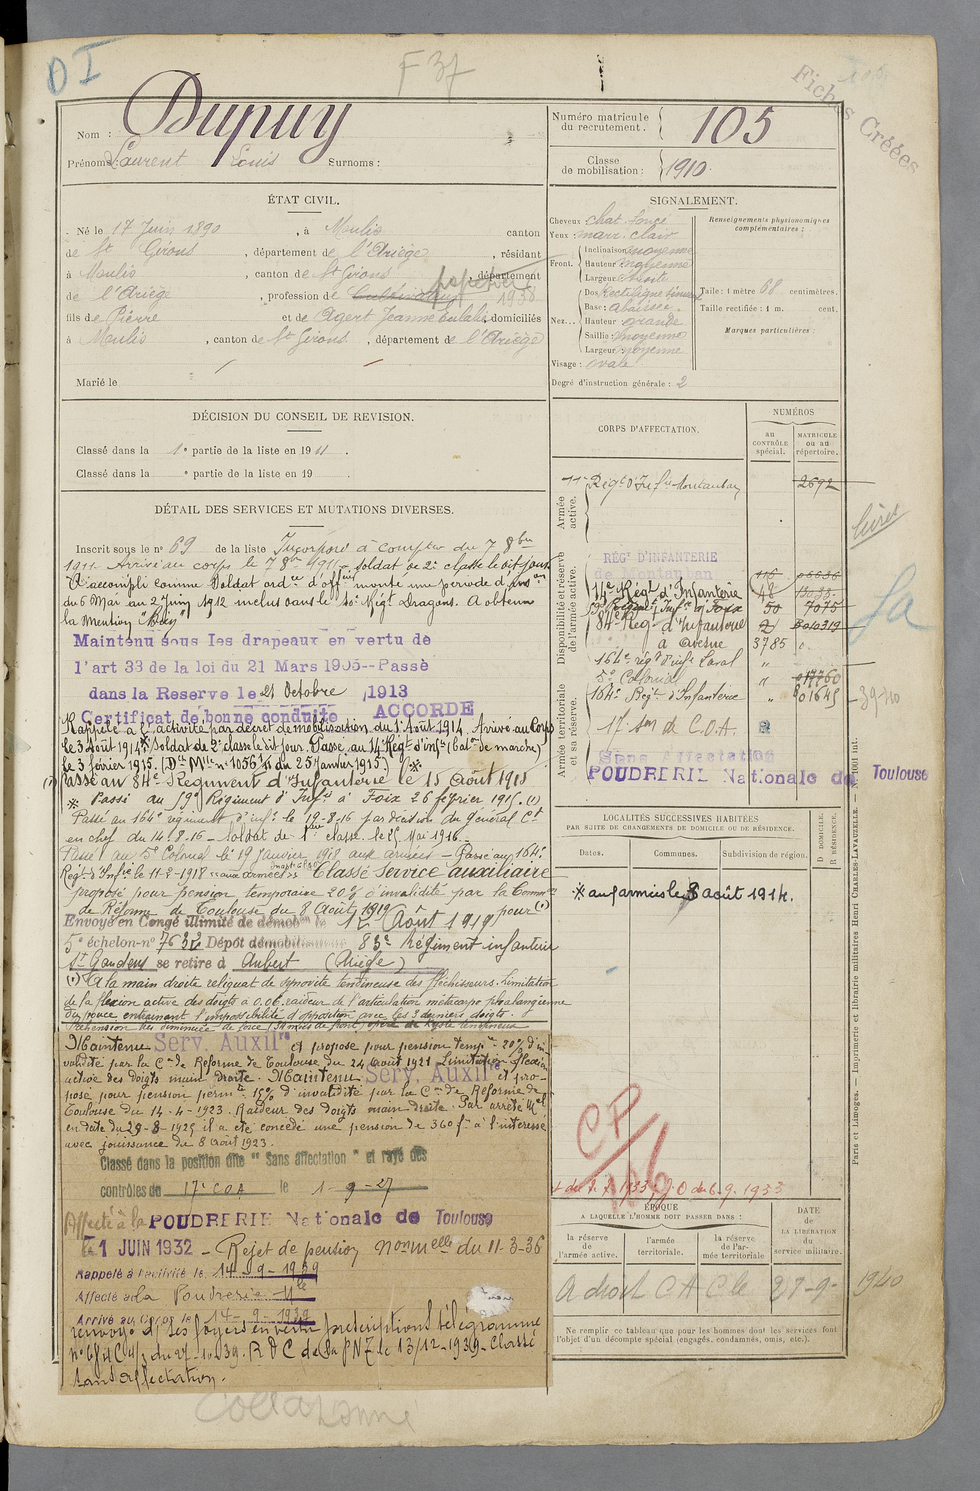 D I
F 37
Fiches Créées
Nom : Dupuy
Prénoms : Laurent Louis Surnoms :
Numéro matricule du recrutement. 105
Classe de mobilisation : 1910
ÉTAT CIVIL.
Né le 17 Juin 1890, à Moulis canton
de St Girons, département de l'Ariège, résidant
à Moulis, canton de St Girons, département
de l'Ariège, profession de Cultivateur papetier 1938
fils de Pierre et de Agert Jeanne Eulalie domiciliés
à Moulis, canton de St Girons, département de l'Ariège
Marié le
SIGNALEMENT.
Cheveux : chat. foncé
Yeux : marr. clair
Front. Inclinaison moyenne
Hauteur moyenne
Largeur
Nez... Dos Rectiligne sinueux
Base : abaissée
Hauteur grande
Saillie : moyenne
Largeur moyenne
Visage : ovale
Degré d'instruction générale : 2
Renseignements physionomiques complémentaires :
Taille : 1 mètre 68 centimètres.
Taille rectifiée : 1 m. cent.
Marques particulières :
DÉCISION DU CONSEIL DE REVISION.
Classé dans la 1e partie de la liste en 1911.
Classé dans la e partie de la liste en 19 .
DÉTAIL DES SERVICES ET MUTATIONS DIVERSES.
Inscrit sous le n° 69 de la liste Incorporé à compter du 7 8bre
1911. Arrivé au corps le 7 8bre 1911. Soldat de 2e classe le dit jour.
A accompli comme Soldat ordre d'officier monté une période d'
du 6 Mai au 2 Juin 1912 inclus dans le 10e Régt Dragons. A obtenu
la Mention "Bien"
Maintenu sous les drapeaux en vertu de
l'art 33 de la loi du 21 Mars 1905--Passé
dans la Reserve le 21 Octobre 1913
Certificat de bonne conduite ACCORDE
Rappelé à l'activité par décret de mobilisation du 1er Août 1914. Arrivé au Corps
le 3 Août 1914 * Soldat de 2e classe le dit jour. Passé au 14e Régt d'infie (Baton de marche)
le 3 février 1915. (Don Mlle n° 1056 1/11 du 25 Janvier 1915)
Passé au 84e Régiment d'Infanterie le 15 Août 1915
* Passé au 59e Régiment d'Infie à Foix 26 février 1915. (1)
Passé au 164e régiment d'infie le 19-8-16 par décision du Général Ct
en chef du 14-8-16 - Soldat de 1ère classe le 25 Mai 1916.
Passé au 5e Colonial le 19 Janvier 1918 aux armées - Passé au 164e
Régt d'Infie le 11-8-1918 aux armées Classé Service auxiliaire
proposé pour pension temporaire 20% d'invalidité par la Common
de Réforme de Toulouse du 8 Août 1919 pour (1)
Envoyé en Congé illimité de démobon le 12 Août 1919
5e échelon n° 7632 Dépôt démobilisateur 83e Régiment infanterie
St Gaudens se retire à Aubert (Ariège)
(1) A la main droite reliquat de synovite tendineuse des fléchisseurs. Limitation
de la flexion active des doigts à 0.06. raideur de l'articulation métacarpo phalangienne
du pouce entrainant l'impossibilité d'opposition avec les 3 derniers doigts.
Maintenu Serv. Auxilre et proposé pour pension tempre 20% d'in
validité par la Con de Réforme de Toulouse du 24 Août 1921 Limitation flexion
active des doigts main droite. Maintenu Serv. Auxilre et pro-
posé pour pension permte 15% d'invalidité par la Con de Réforme de
Toulouse du 14-4-1923. Raideur des doigts main droite. Par arrêté Mel
en date du 29-8-1925 il a été concédé une pension de 360 f. à l'intéressé
avec jouissance du 8 Août 1923.
Classé dans la position dite "Sans affectation" et rayé des
contrôles du 17e COA le 1-9-27
Affecté à la POUDRERIE Nationale de Toulouse
le 1 JUIN 1932 - Rejet de pension normelle du 11-3-36
Rappelé à l'activité le 14-9-1939
Affecté à la Poudrerie Nle
Arrivé au Corps le 14-9-1939
renvoyé ds ses foyers en vertu prescriptions télégramme
R d C de la PNT le 13/12-1939 - Classé
sans affectation.
CORPS D'AFFECTATION.
NUMÉROS
AU CONTRÔLE spécial.
MATRICULE OU AU répertoire.
Armée active.
11e Régt d'Infie Montauban 2692
Disponibilité et réserve de l'armée active.
RÉGt D'INFANTERIE
de Montauban 116
14e Régt d'Infanterie 48
59e Régiment Infie Foix 50 7075
84e Régt d'Infanterie 010319
à Avesne 3785
164e régt d'infie Laval "
5e Colonial "
164e Régt d'Infanterie " 01645
Armée territoriale et sa réserve.
17e Son de C.O.A.
Sans Affectation
POUDRERIE Nationale de Toulouse
39740
LOCALITÉS SUCCESSIVES HABITÉES
PAR SUITE DE CHANGEMENTS DE DOMICILE OU DE RÉSIDENCE.
Dates.
Communes.
Subdivision de région.
D DOMICILE. R RÉSIDENCE.
* aux armées le 8 août 1914.
CP
106
ÉPOQUE
A LAQUELLE L'HOMME DOIT PASSER DANS :
la réserve de l'armée active.
l'armée territoriale.
la réserve de l'armée territoriale
DATE de LA LIBÉRATION du service militaire.
A droit C A Cle 27-9-1940
Ne remplir ce tableau que pour les hommes dont les services font
l'objet d'un décompte spécial (engagés, condamnés, omis, etc.).
Paris et Limoges. — Imprimerie et librairie militaires Henri CHARLES-LAVAUZELLE. — N° 1001 int.